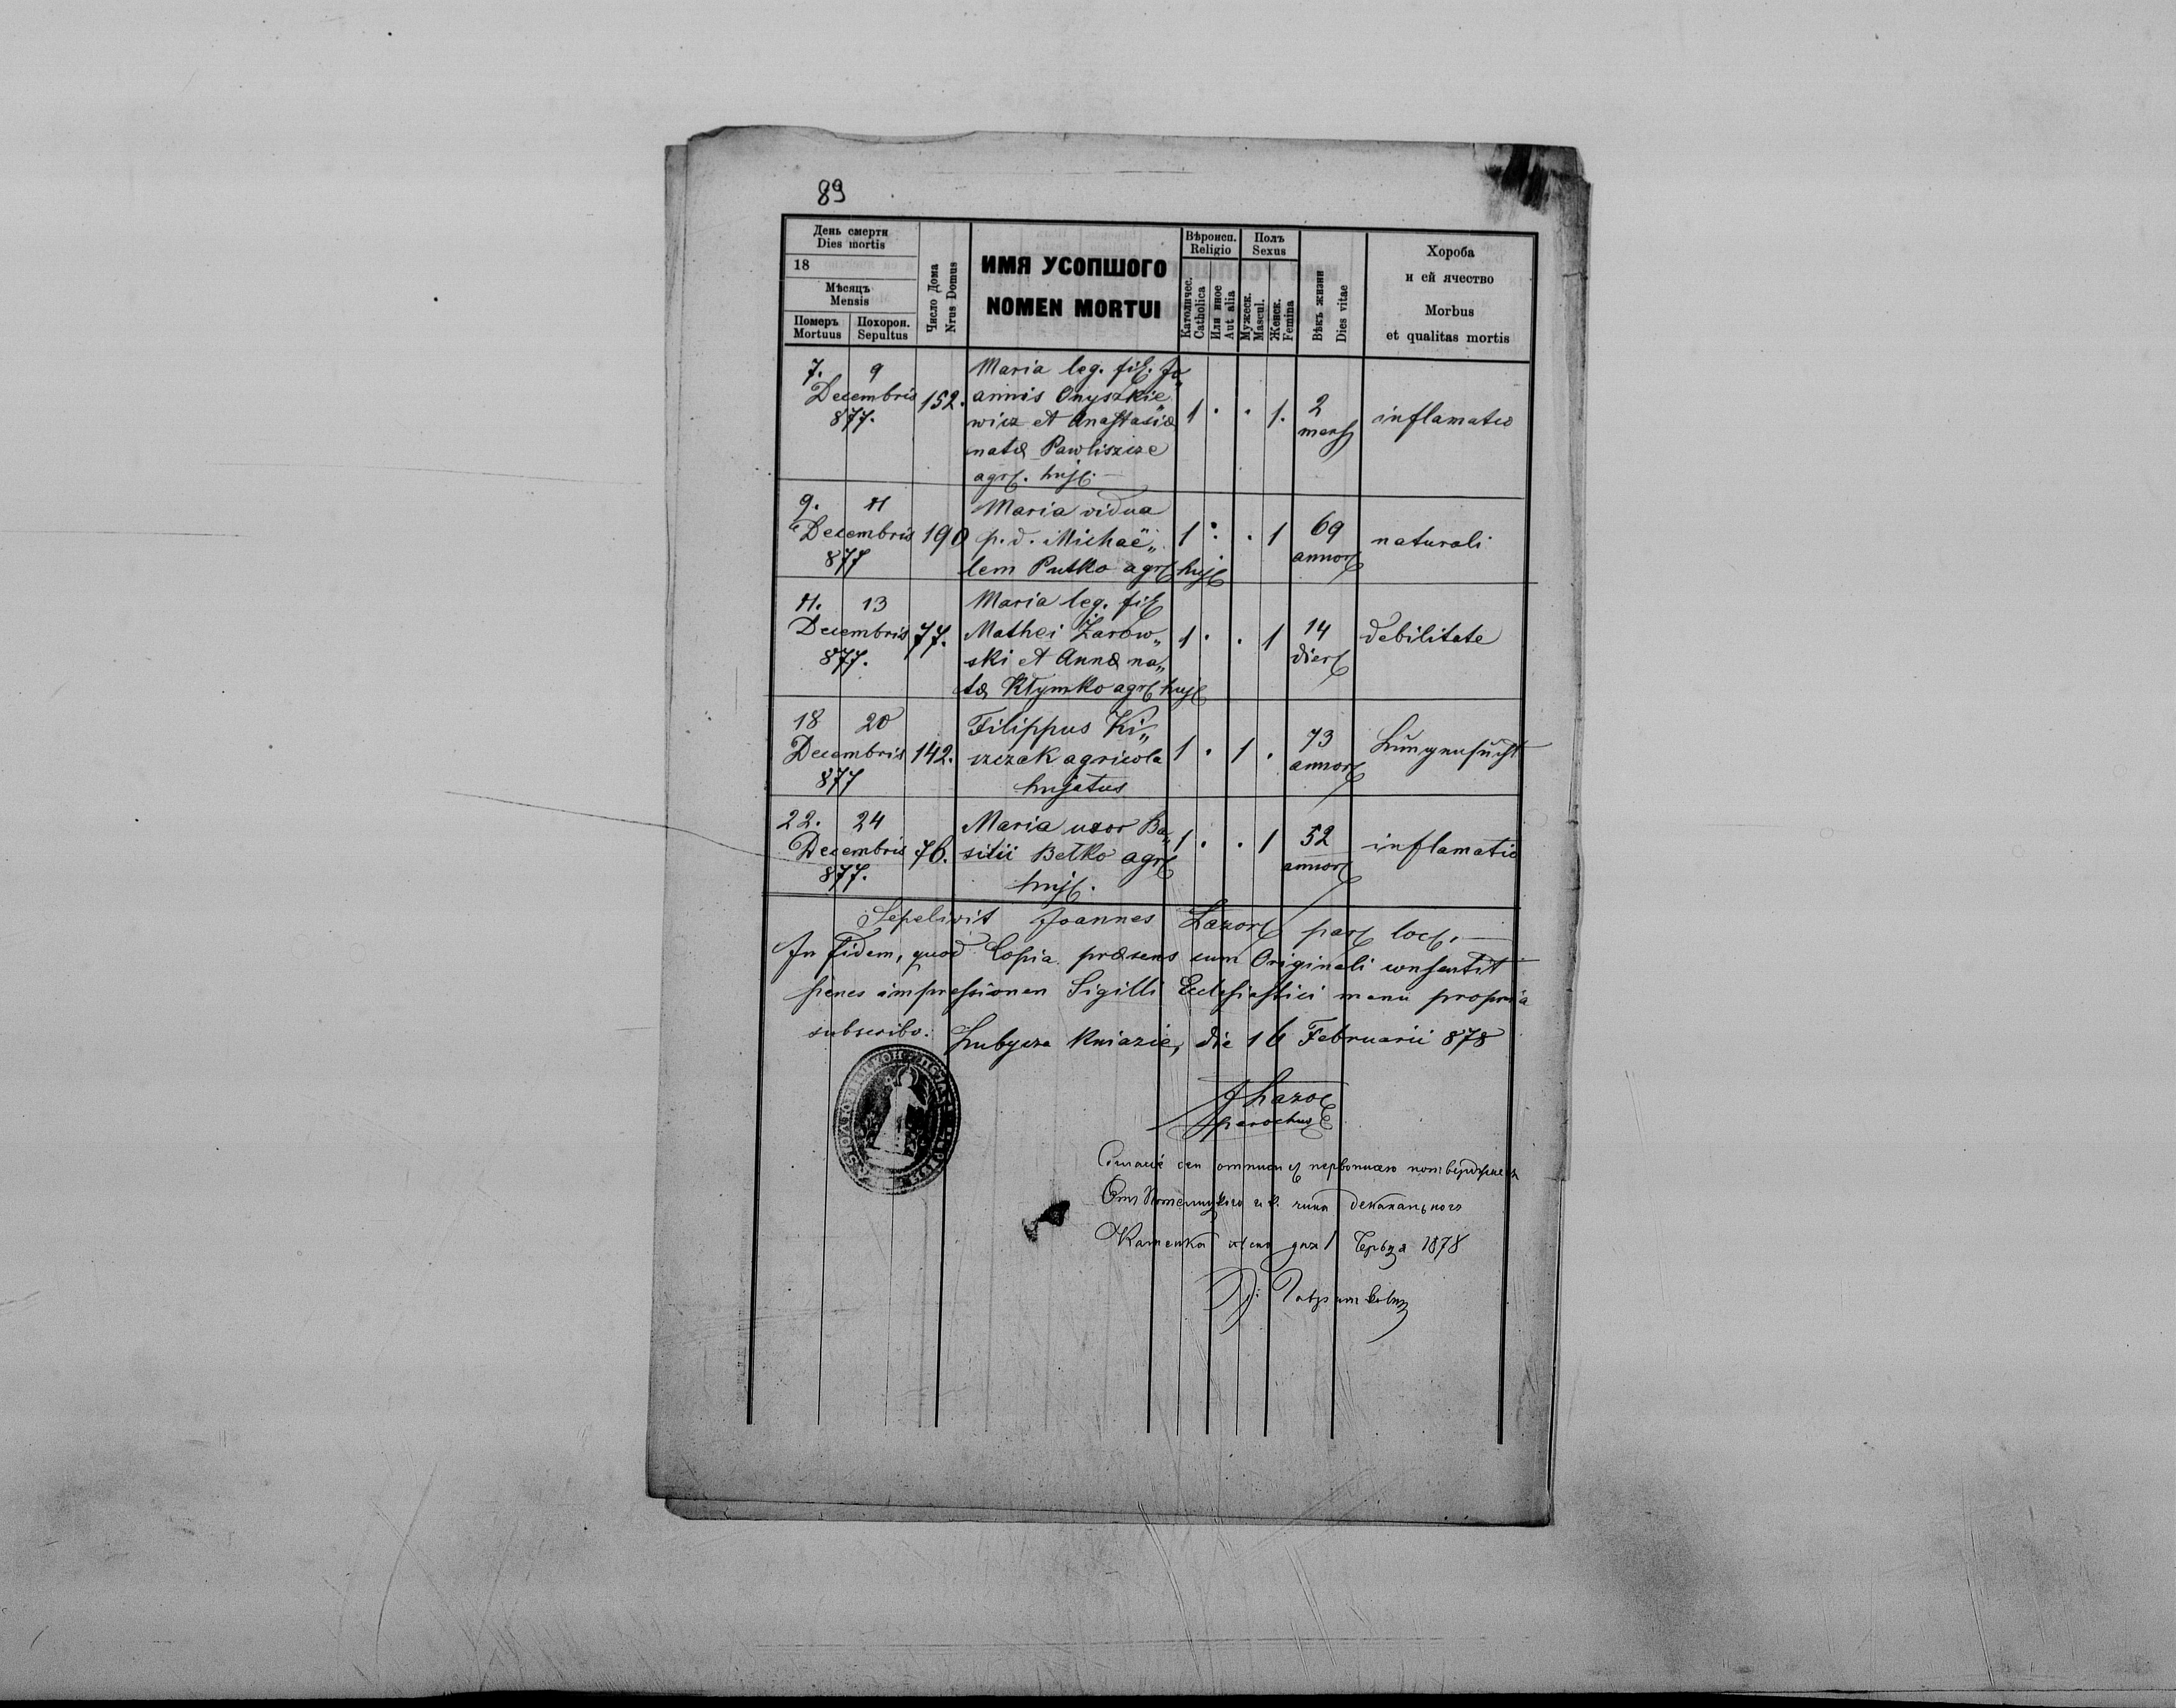 89
День смерти
Dies mortis
18
Мѣсяцъ
Mensis
Померъ
Mortuus
Похорон.
Sepultus
Число Дома
Nrus Domus
ИМЯ УСОПШОГО
NOMEN MORTUI
Вѣроисп.
Religio
Католичес.
Catholica
Или иное
Aut alia
Полъ
Sexus
Мужеск.
Mascul.
Женск.
Femina
Вѣкъ жизни
Dies vitae
Хороба
и ей ячество
Morbus
et qualitas mortis
7. 9 Maria leg. fil. Jo„
Decembris 152. annis Onyszkie„ 1 . . 1. 2 inflamatio
877. wicz et Anastasiæ mens
natæ Pawliszcze
agr. huj. —
9. 11 Maria vidua
Decembris 190 p. d. Michaë„ 1 : . 1 69 naturali
877 lem Putko agr huj annor
11. 13 Maria leg. fil
Decembris 77. Mathei Żarow„ 1 . . 1 14 debilitate
877. ski et Annæ na„ dier
tæ Kłymko agr huj
18 20 Filippus Ki„
Decembris 142. szczak agricola 1 . 1 . 73 Lungensucht
877 hujatus annor
22. 24 Maria uxor Ba„
Decembris 76. silii Bełko agr 1 . . 1 52 inflamatio
877. huj. annor
Sepelivit Joannes Lazor par loc. —
In fidem, quod Copia præsens cum Originali consentit
penes impressionem Sigilli Ecclesiastici manu propria
subscribo. Lubycza Kniazie, die 16 Februarii 878
J Lazor
parochus
Каменка дня Червця 1878